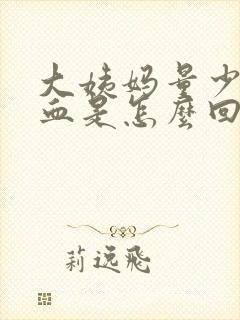 大姨妈量少
血是怎麽回
莉逸飛